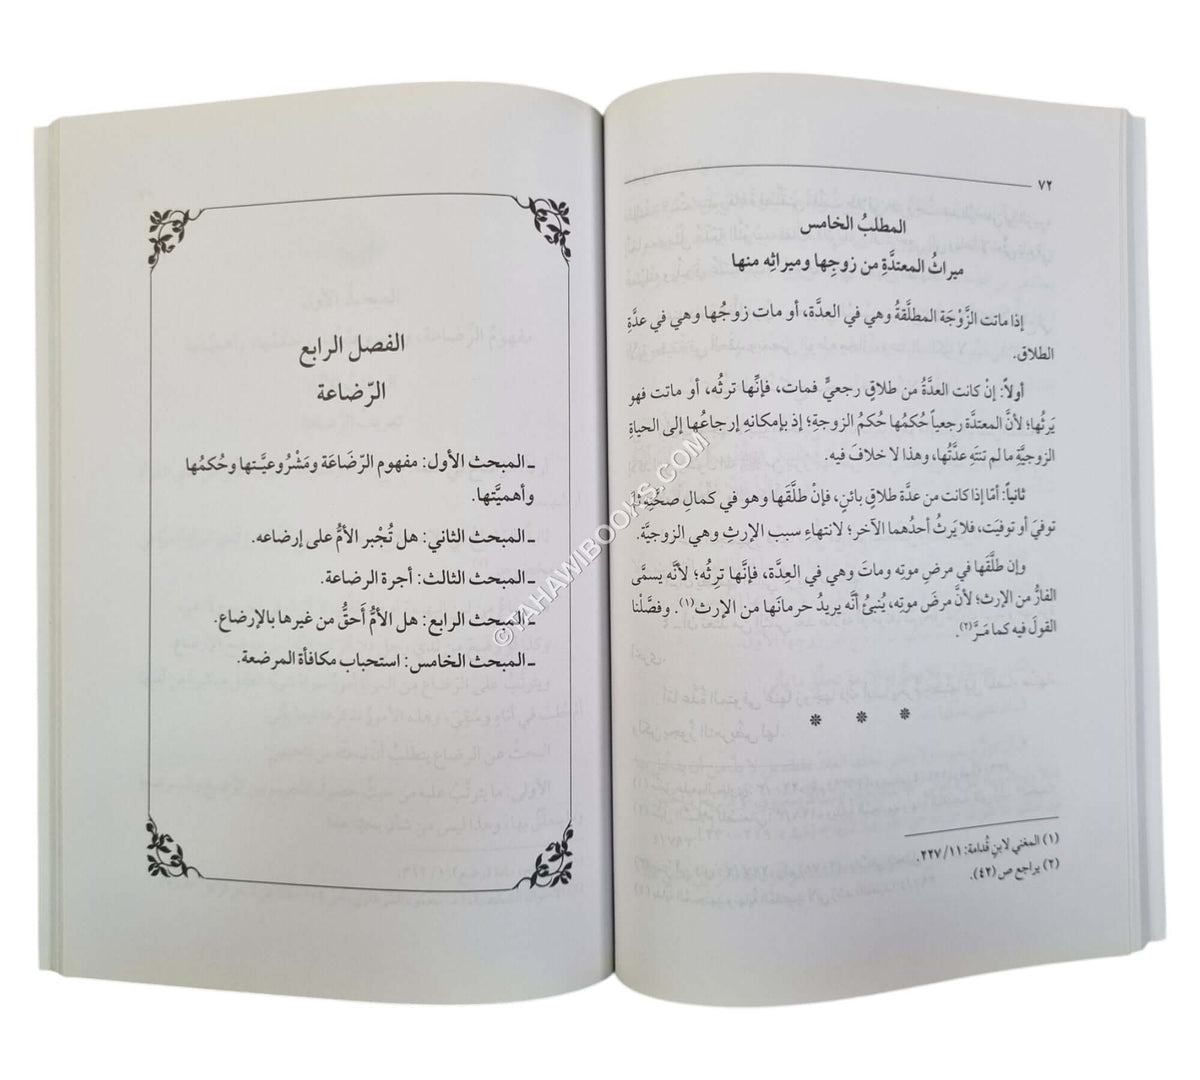 ٧٢
المطلبُ الخامس
ميراثُ المعتدَّةِ من زوجِها وميراثِه منها
إذا ماتت الزَّوْجَة المطلَّقةُ وهي في العدَّة، أو مات زوجُها وهي في عدَّةِ
الطلاق.
أولاً: إنْ كانت العدَّةُ من طلاقٍ رجعيٍّ فمات، فإنَّها ترثُه، أو ماتت فهو
يَرثُها؛ لأنَّ المعتدَّة رجعياً حُكمُها حُكمُ الزوجةِ؛ إذ بإمكانهِ إرجاعُها إلى الحياةِ
الزوجيَّةِ ما لم تنتهِ عدَّتُها، وهذا لا خلافَ فيه.
ثانياً: أمّا إذا كانت من عدَّة طلاقٍ بائنٍ، فإنْ طلَّقَها وهو في كمالِ صحَّتِه ثمَّ
توفيَ أو توفيَت، فلا يَرثُ أحدُهما الآخر؛ لانتهاءِ سببِ الإرثِ وهي الزوجيَّة.
وإن طلَّقَها في مرضِ موتِه وماتَ وهي في العِدَّة، فإنَّها ترِثُه؛ لأنَّه يسمَّى
الفارُّ من الإرث؛ لأنَّ مرضَ موتِه، يُنبئُ أنَّه يريدُ حرمانَها من الإرث(١). وفصَّلْنا
القولَ فيه كما مَرَّ(٢).
* * *
(١) المغني لابنِ قُدامة: ١١/ ٢٢٧.
(٢) يراجع ص (٤٢).
الفصل الرابع
الرّضاعة
ـ المبحث الأول: مفهوم الرّضَاعَة ومَشْرُوعيَّـتها وحُكمُها
وأهميَّتها.
ـ المبحث الثاني: هل تُجْبر الأمُّ على إرضاعه.
ـ المبحث الثالث: أجرة الرضاعة.
ـ المبحث الرابع: هل الأمُّ أَحقُّ من غيرها بالإرضاع.
ـ المبحث الخامس: استحباب مكافأة المرضعة.
©TAHAWIBOOKS.COM